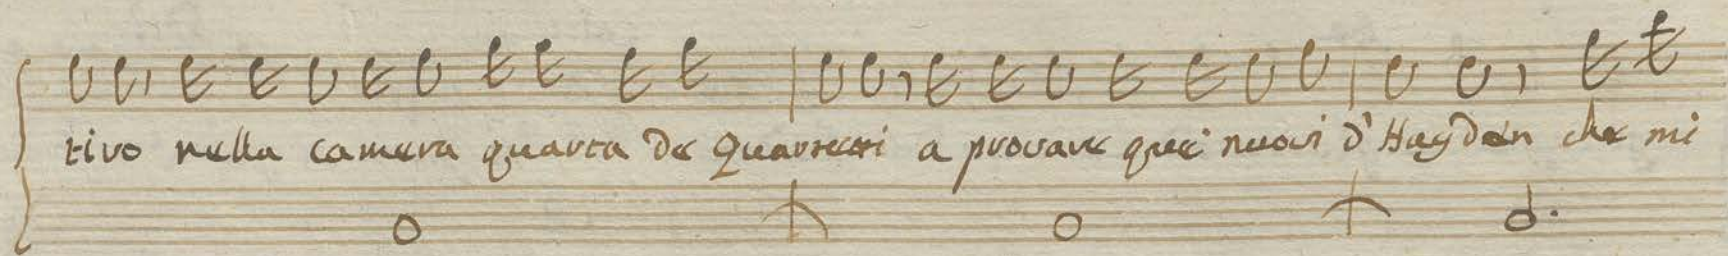 tivo nella camera quarta de Quartetti a provare quei nuovi d'Hayden che mi